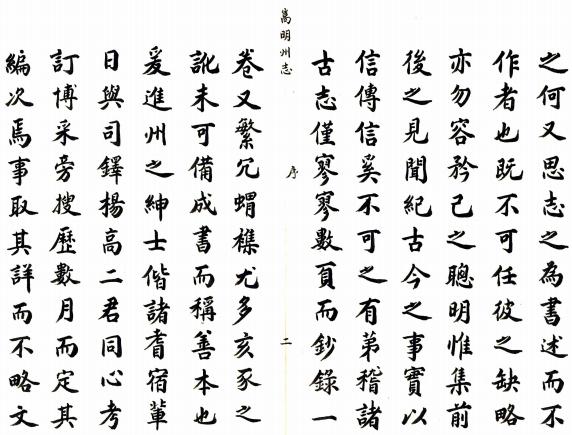 之何又思志之為書述而不
作者也既不可任彼之缺略
亦勿容矜己之聰明惟集前
後之見聞紀古今之事實以
信傳信奚不可之有第稽諸
古志僅寥寥數頁而鈔錄一
嵩明州志
序
二
卷又繁冗蝟橾尤多亥豕之
訛未可備成書而稱善本也
爰進州之紳士偕諸耆宿輩
日與司鐸楊高二君同心考
訂博采旁搜歷數月而定其
編次焉事取其詳而不略文